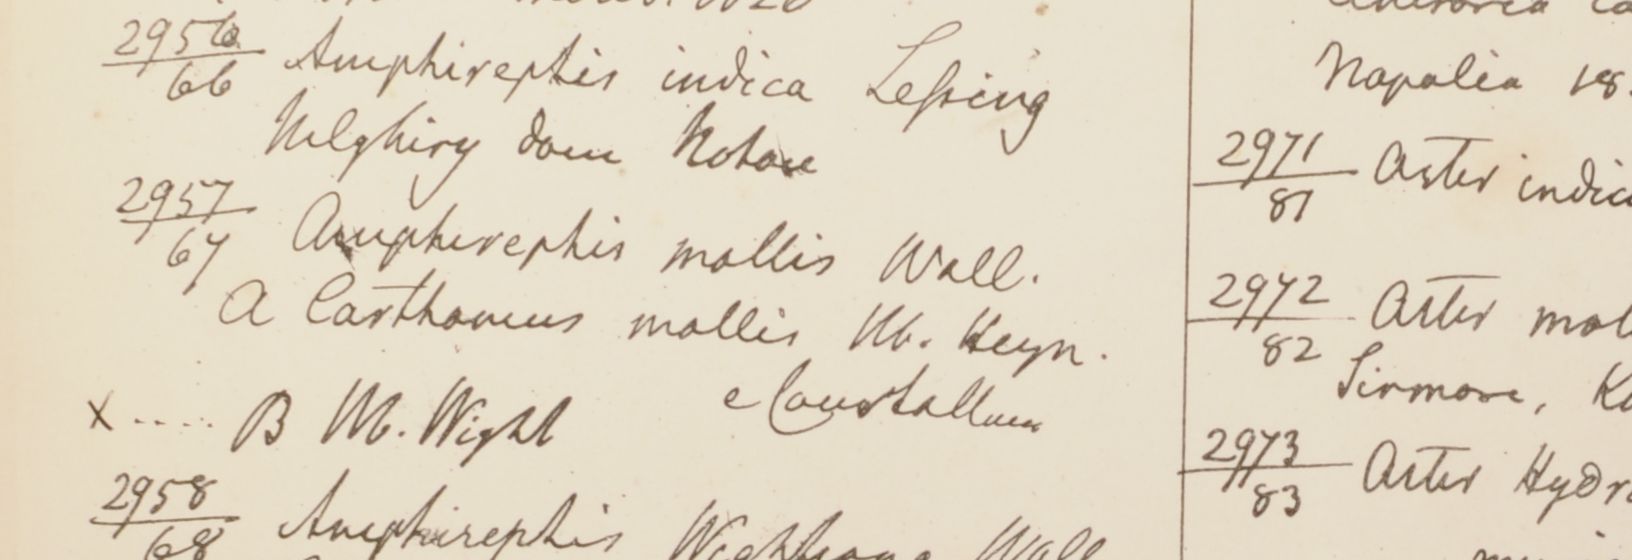 2956
66 Amphirephis indica Leſsing
Nilghiry dom Noton
2957
67 Amphirephis mollis Wall.
A Carthamus mollis Hb. Heyn.
e Courtallum
x ..... B Hb. Wight
2958
68 Amphirephis Wightiana Wall
Napalia 18
2971
81 Aster indic
2972
82 Aster mol
Sirmore, K
2973
83 Aster Hydr